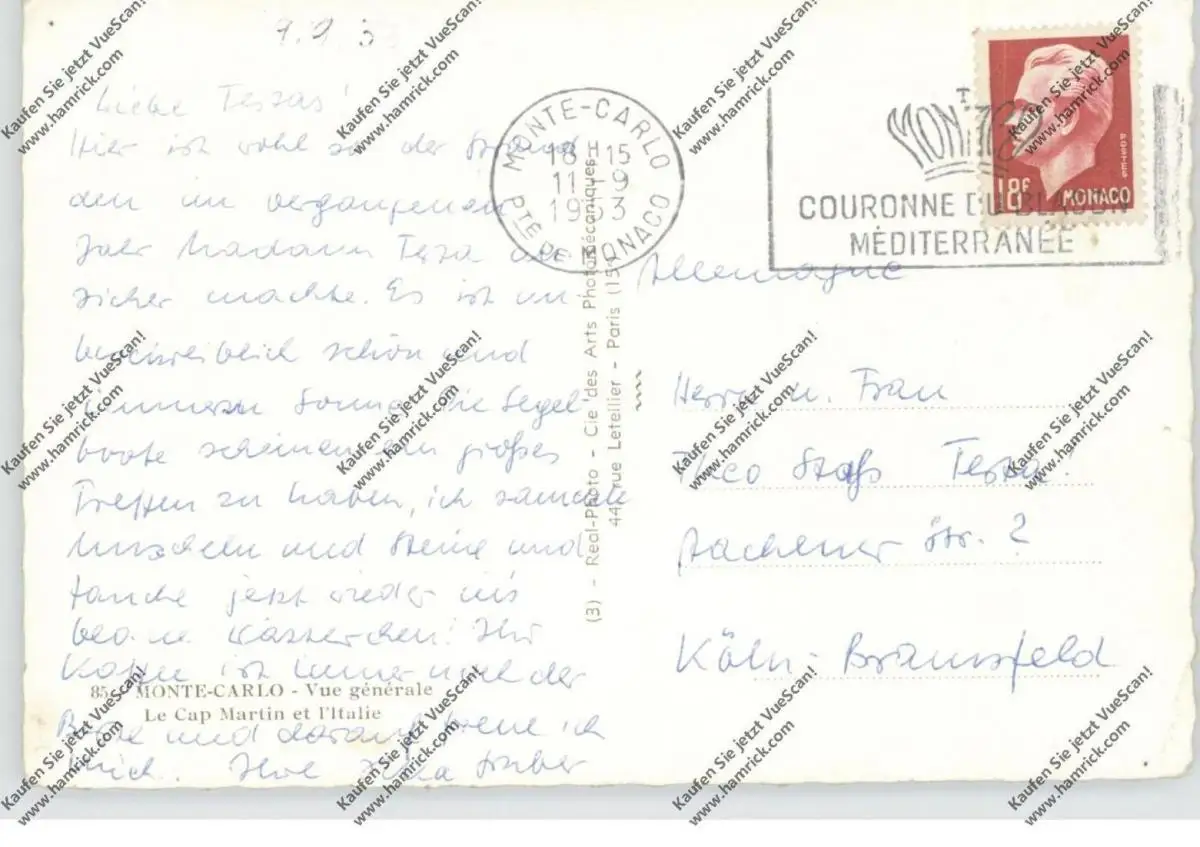 9.9.53
Liebe Tezas!
Hier ist wohl so der Strand
den im vergangenen
Jahr Madam Teza
sicher machte. Es ist un-
beschreiblich schön und
immerzu Sonne. Die Segel
boote scheinen ein großes
Treffen zu haben, ich sammle
Muscheln und Steine und
tauche jetzt wieder ins
blaue Wässerchen! Ihr
Kaffee ist immer noch der
Beste und darauf freue ich
mich. Ihre
85 MONTE-CARLO - Vue générale
Le Cap Martin et l'Italie
(3) - Real-Photo - Cie des Arts Photomécaniques -
44, rue Letellier - Paris (15e)
MONTE-CARLO
18H15
11-9
1953
PTE DE MONACO
COURONNE DU BLASON
MÉDITERRANÉE
POSTES
18F
MONACO
Allemagne
Herrn u. Frau
Theo Teza
Aachener Str. 2
Köln-Braunsfeld
Kaufen Sie jetzt VueScan!
www.hamrick.com